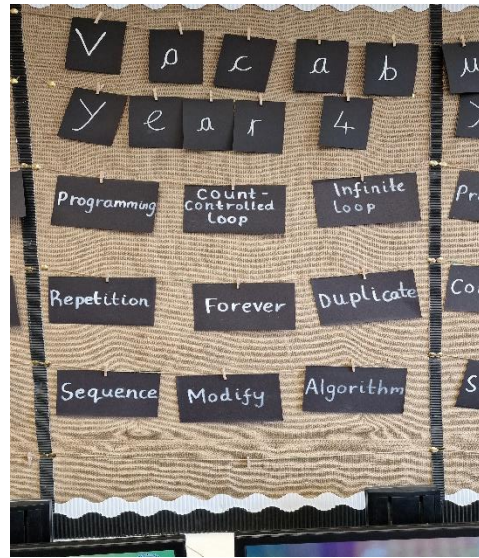 Vocab
Year 4
Programming Count-Controlled Loop Infinite loop
Repetition Forever Duplicate
Sequence Modify Algorithm